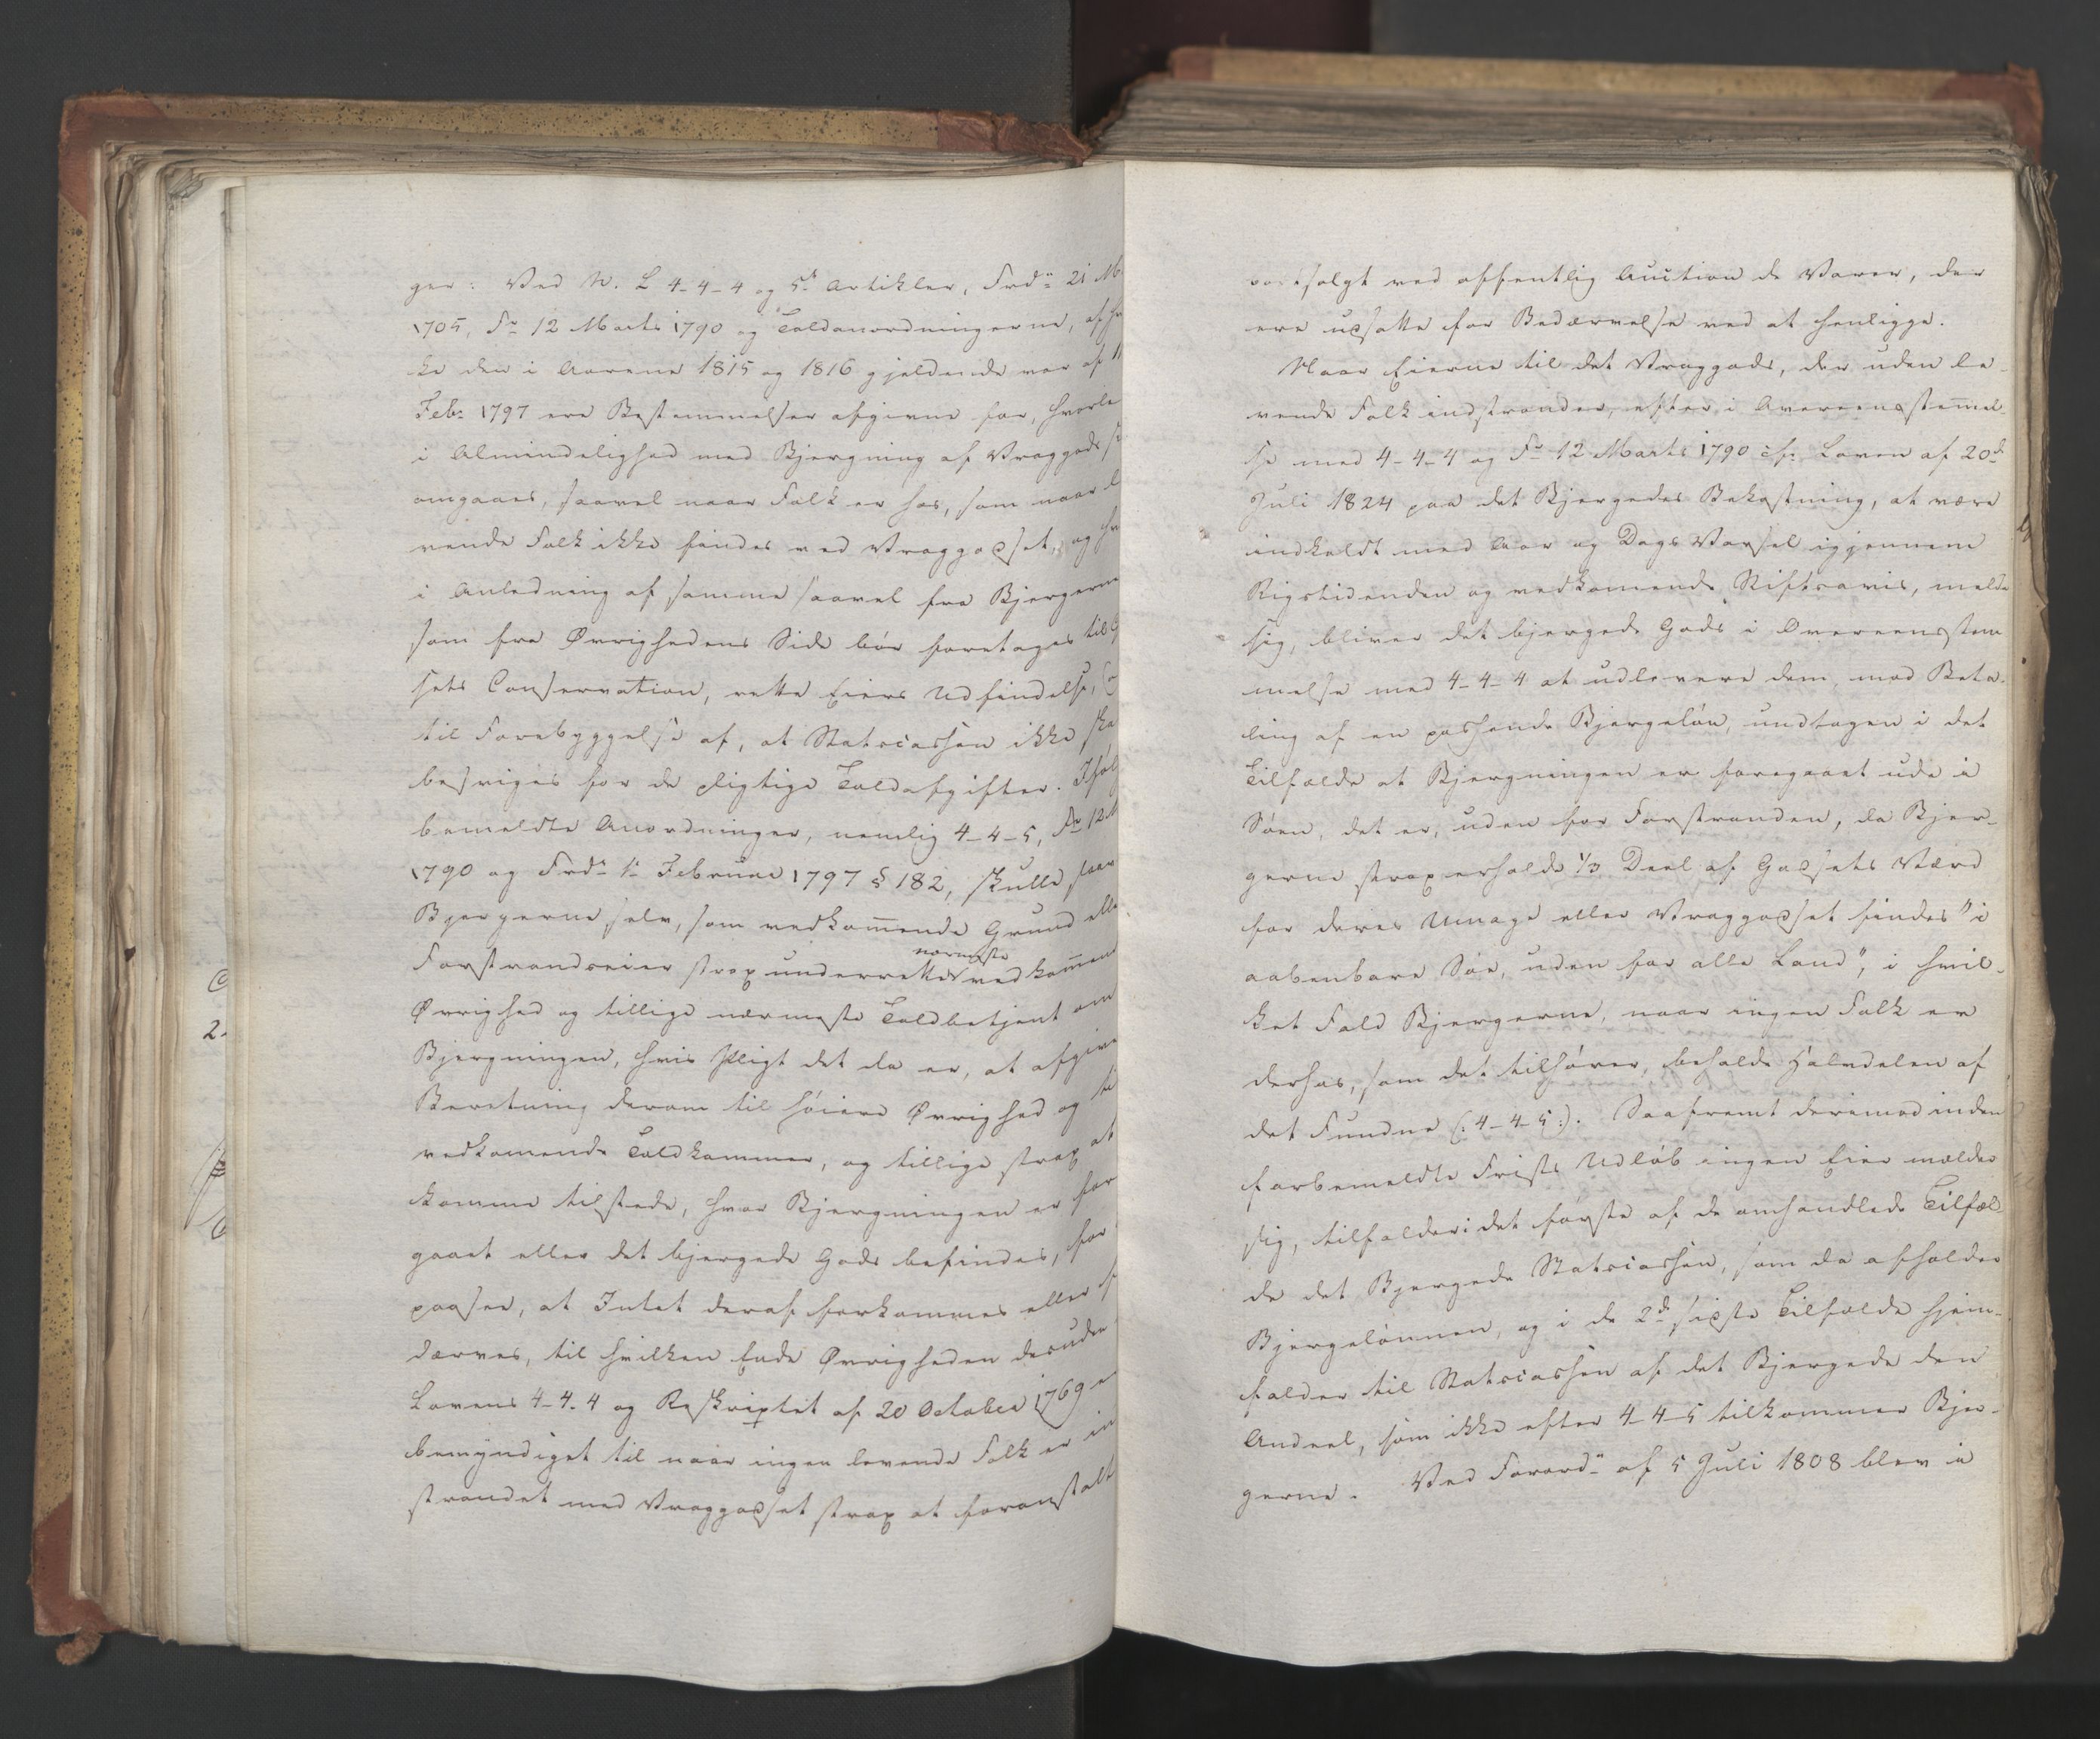 ger: Ved N. L 4-4-4 og 5t Artikler, Frdn 21 M
1705, Fr 12 Marts 1790 og Toldanordningerne, af hv
ke den i Aarene 1815 og 1816 gjeldende var af 1
Febr 1797 ere Bestemmelser afgivne for, hvorle
i Almindelighed med Bjergning af Vraggods s
omgaaes, saavel naar Folk er hos, som naar l
vende Folk ikke findes ved Vraggodset, og hv
i Anledning af samme saavel fra Bjergerne
som fra Øvrighedens Side bør foretages til G
sets Conservation, rette Eiers Udfindelse, o
til Forebyggelse af, at Statscassen ikke ska
besviges for de pligtige Toldafgifter. Ifølg
bemeldte Anordninger, nemlig 4-4-5, Fr 12 M
1790 og Frdn 1. Februar 1797 § 182, skulle saav
Bjergerne selv, som vedkommende Grund elle
nærmeste
Forstrandseier strax underrette vedkommend
Øvrighed og tillige nærmeste Toldbetjent om
Bjergningen, hvis Pligt det da er, at afgive
Beretning derom til høiere Øvrighed og ti
vedkomende Toldkammer, og tillige strax at
komme tilstede, hvor Bjergningen er for
gaaet eller det bjergede Gods befindes, for
paasee, at Intet deraf forkommes eller f
dærves, til hvilken Ende Øvrigheden desuden
Lovens 4-4.4 og Reskriptet af 20 October 1769 e
bemyndiget til naar ingen levende Folk er in
strandet med Vraggodset strax at foranstalt
bortsolgt ved offentlig Auction de Varer, der
ere udsatte for Bedærvelse ved at henligge.
Naar Eierne til det Vraggods, der uden le-
vende Folk indstrander, efter i Overeensstemel-
se med 4-4-4 og Fr 12 Marts 1790 cfr Loven af 20d
Juli 1824 paa det Bjergedes Bekostning, at være
indkaldt med Aar og Dags Varsel igjennem
Rigstidenden og vedkomende Stiftsavis, melde
sig, bliver det bjergede Gods i Overeensstem
melse med 4-4-4 at udlevere dem, mod Beta-
ling af en passende Bjergeløn, undtagen i det
Tilfælde at Bjergningen er foregaaet ude i
Søen, det er, uden for Forstranden, da Bjer-
gerne strax erholde 1/3 Deel af Godsets Værd
for deres Umage eller Vraggodset findes "i
aabenbare Søe, uden for alle Land", i hvil-
ket Fald Bjergerne, naar ingen Folk er
derhos, som det tilhører, beholde Halvdelen af
det Fundne (: 4-4-5 :). Saafremt derimod inden
forbemeldte Frists Udløb ingen Eier melder
sig, tilfalder i det første af de omhandlede Tilfæl-
de det Bjergede Statscassen, som da afholder
Bjergelønnen, og i de 2de sidste Tilfælde hjem-
falder til Statscassen af det Bjergede den
Andeel, som ikke efter 4-4-5 tilkommer Bjer-
gerne. Ved Forordn af 5 Juli 1808 blev i